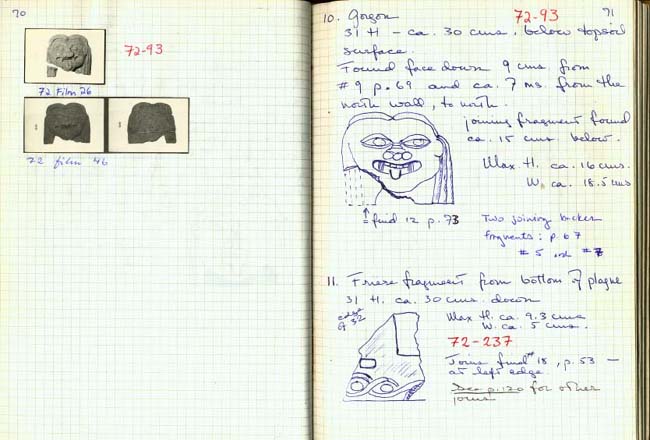 70
72-93
72 Film 26
72 film 46
71
10. Gorgon 72-93
31 H - ca. 30 cms. below topsoil
surface.
Found face down 9 cms. from
#9 p. 69 and ca. 7 ms. from the
north wall, to north.
joining fragment found
ca. 15 cms. below.
Max. H. ca. 16 cms.
W. ca. 18.5 cms
= find 12 p. 73
Two joining broken
fragments: p. 67
#5 and #7
11. Frieze fragment from bottom of plaque
31 H. ca. 30 cms. down
Max H. ca. 9.3 cms
W. ca. 5 cms.
72-237
Joins find #18, p. 53 -
at left edge
See p. 120 for other
joins.